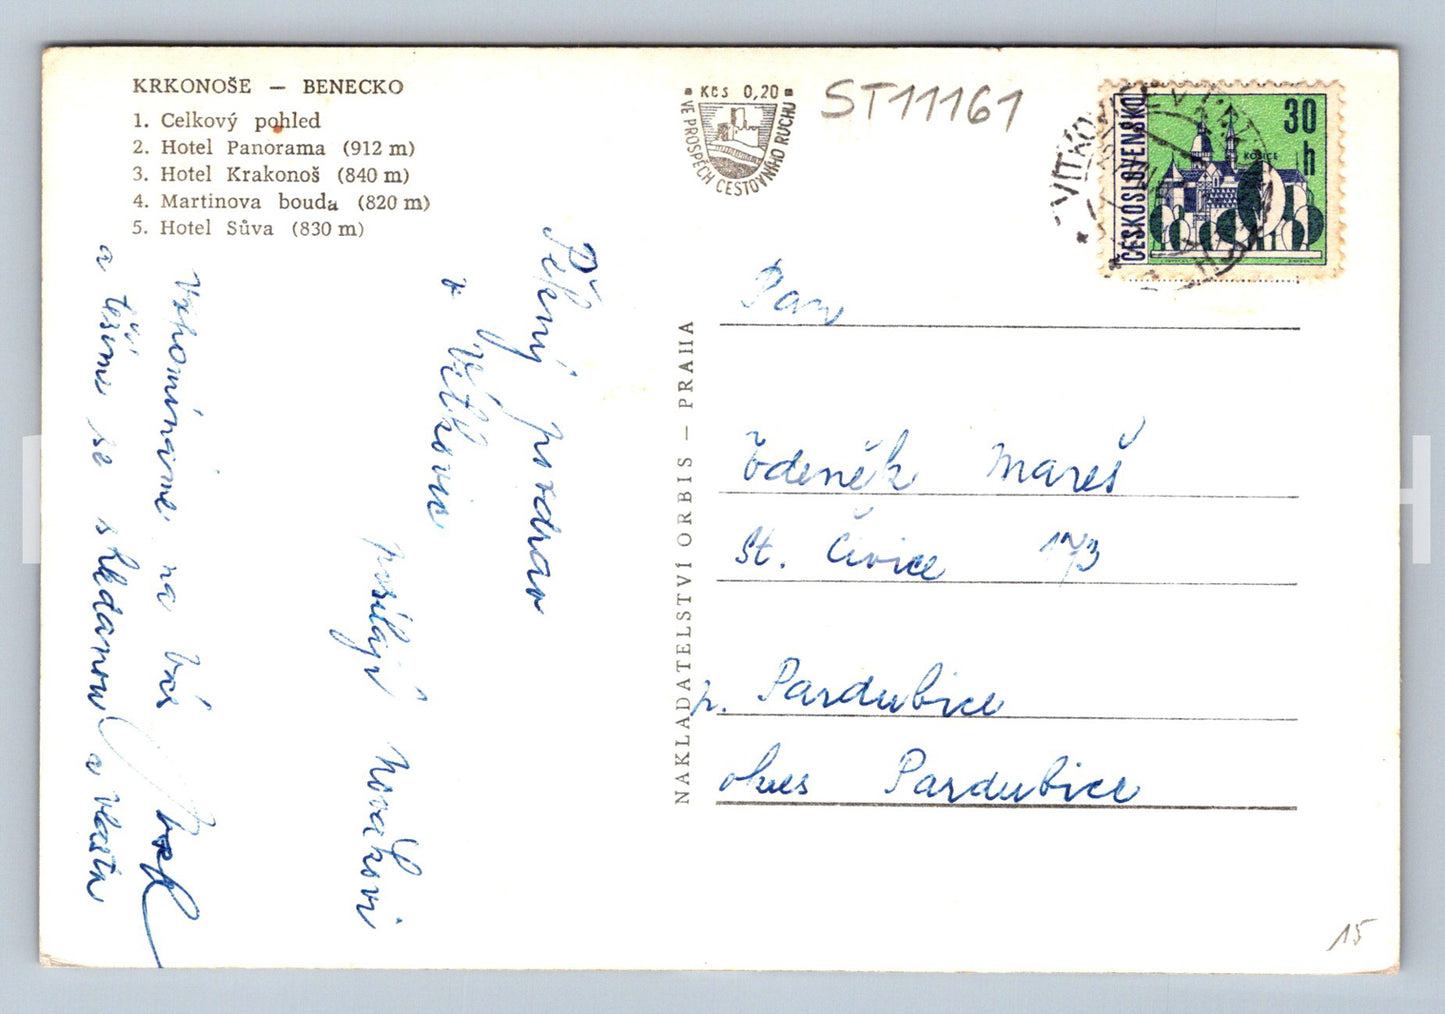 KRKONOŠE — BENECKO
1. Celkový pohled
2. Hotel Panorama (912 m)
3. Hotel Krakonoš (840 m)
4. Martinova bouda (820 m)
5. Hotel Sůva (830 m)
Kčs 0,20
VE PROSPĚCH CESTOVNÍHO RUCHU
ST11161
VÍTKOVICE V KRK
ČESKOSLOVENSKO
30
h
KOŠICE
Pěkný pozdrav
z Vítkovic
posílají Novákovi
Vzpomínáme na vás
a těšíme se shledanou a vlasta
NAKLADATELSTVÍ ORBIS — PRAHA
Pan
Zdeněk Mareš
St. Čivice 173
p. Pardubice
okres Pardubice
15